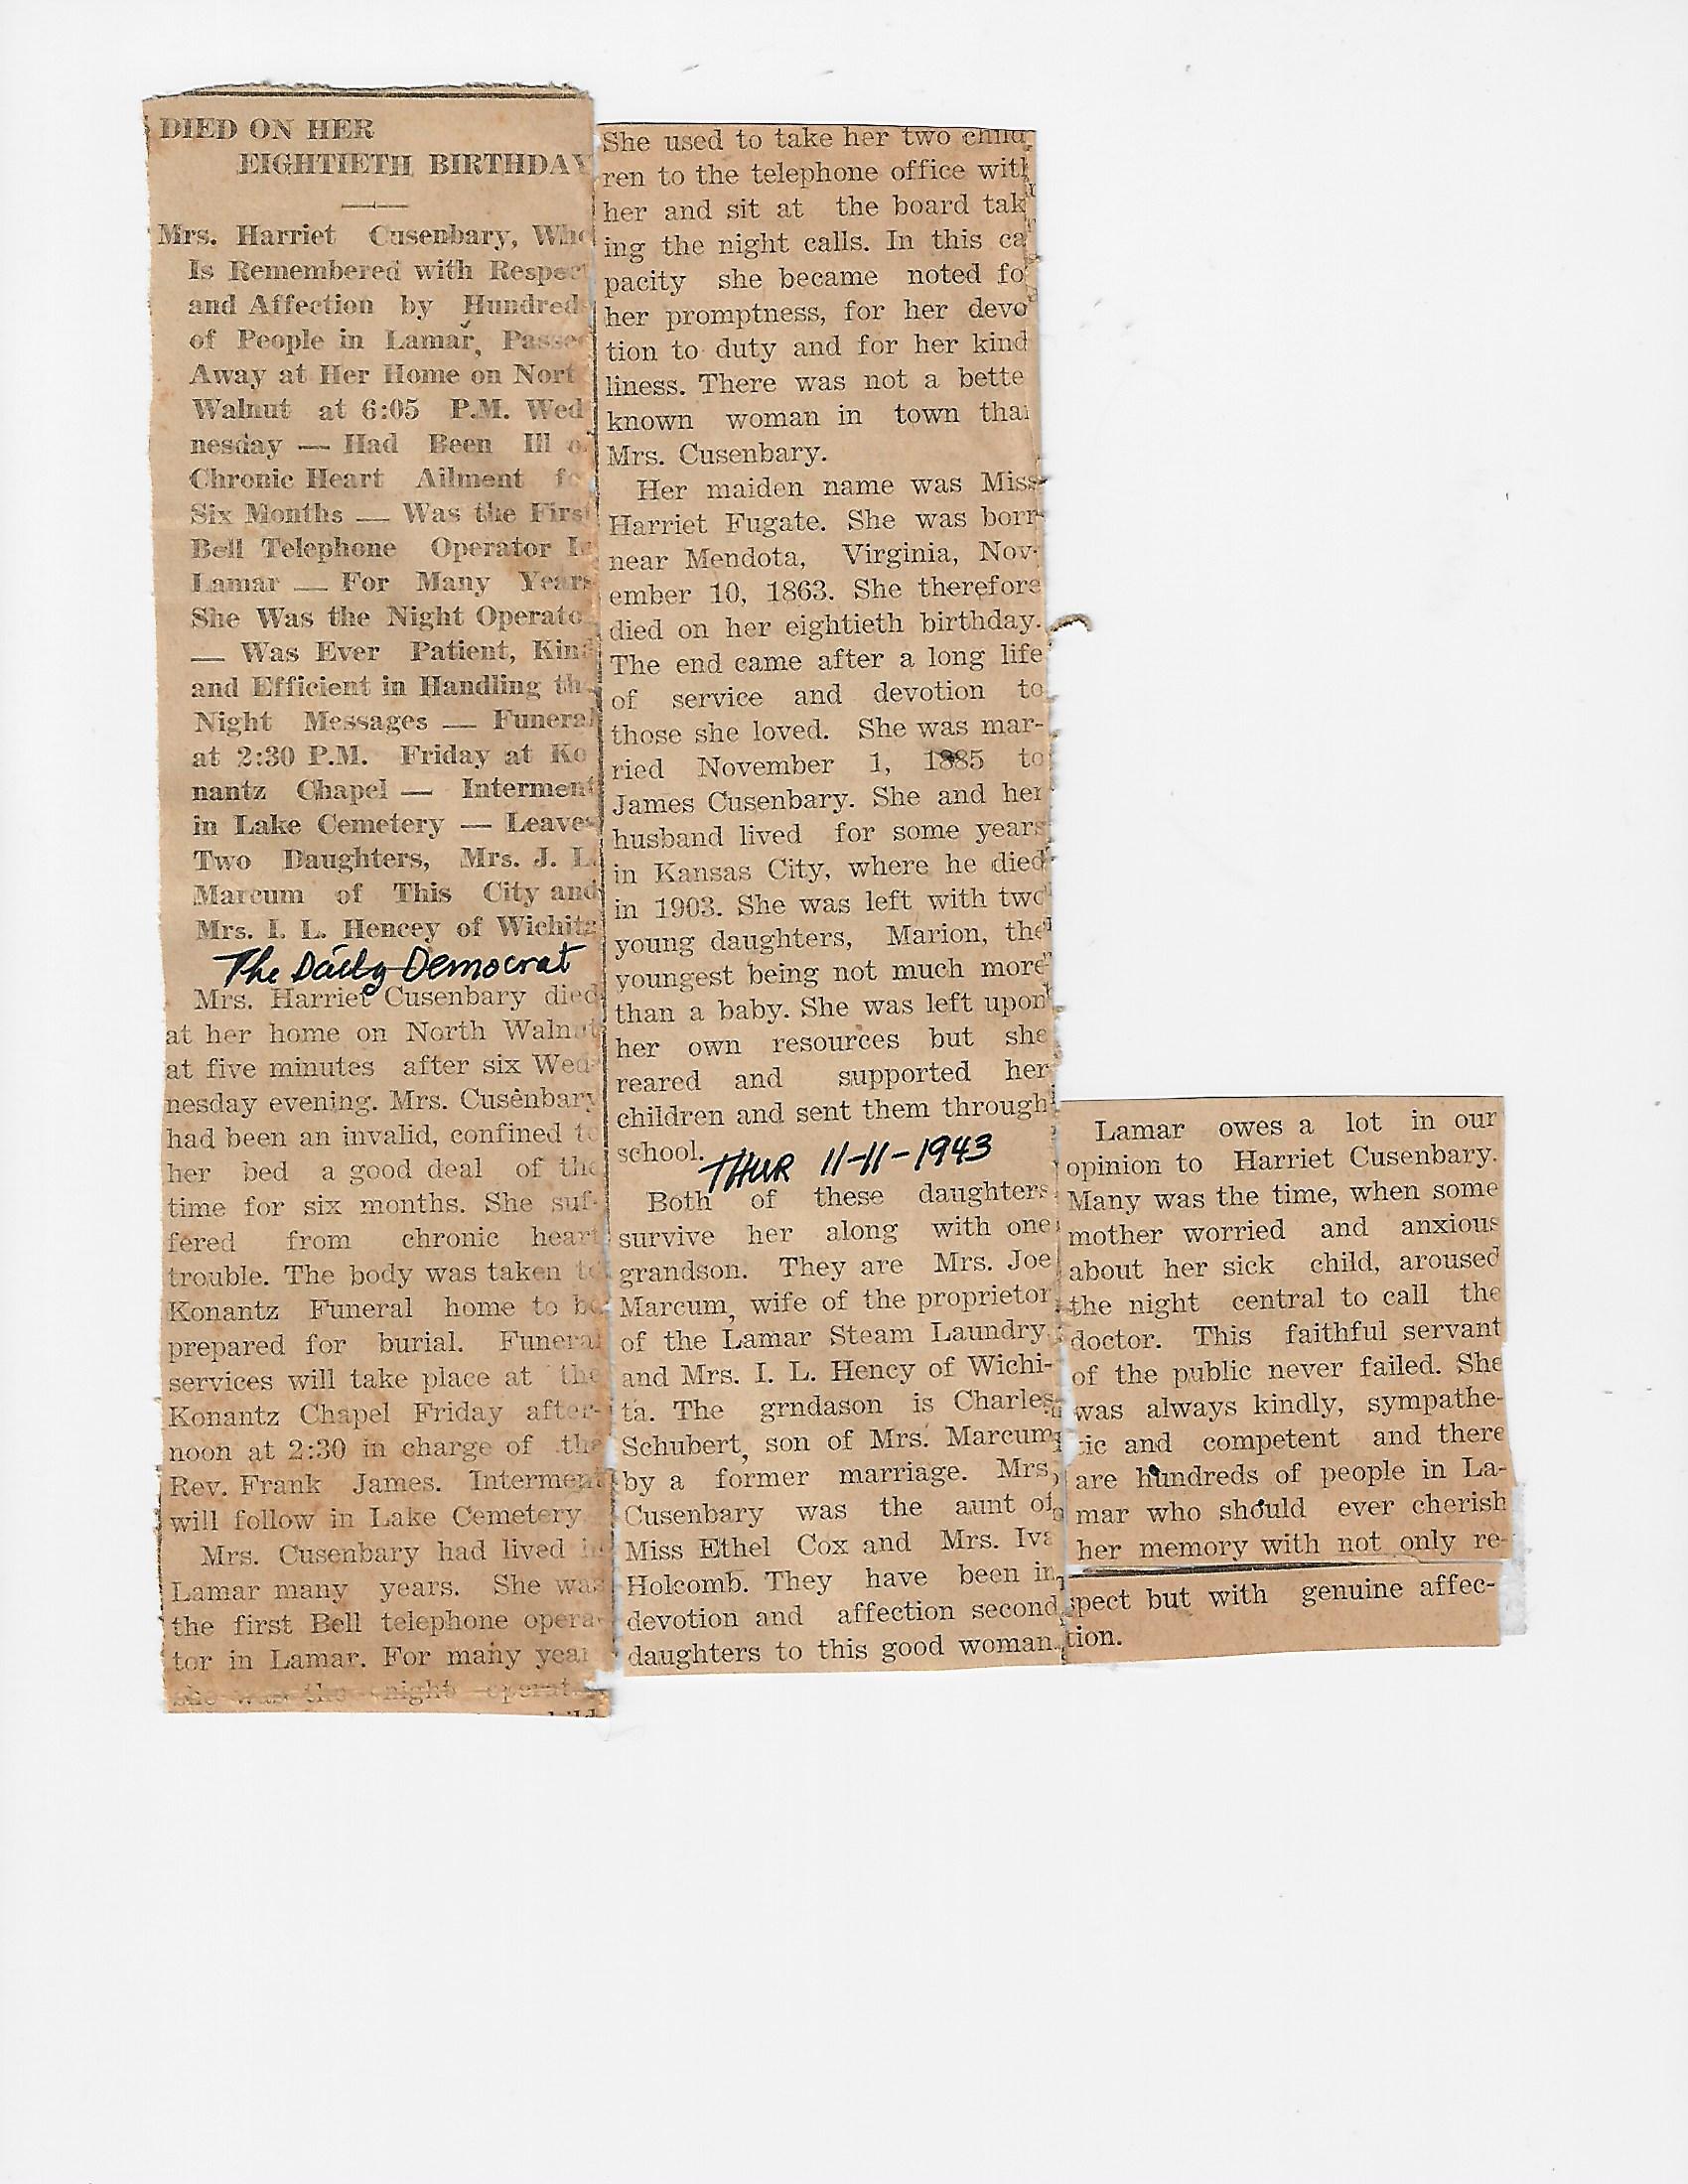 DIED ON HER
EIGHTIETH BIRTHDAY
Mrs. Harriet Cusenbary, Who
Is Remembered with Respect
and Affection by Hundred
of People in Lamar, Passed
Away at Her Home on Nort
Walnut at 6:05 P.M. Wed
nesday — Had Been Ill o
Chronic Heart Ailment fo
Six Months — Was the First
Bell Telephone Operator In
Lamar — For Many Years
She Was the Night Operato
— Was Ever Patient, Kind
and Efficient in Handling the
Night Messages — Funeral
at 2:30 P.M. Friday at Ko
nantz Chapel — Interment
in Lake Cemetery — Leaves
Two Daughters, Mrs. J. L.
Marcum of This City and
Mrs. I. L. Hencey of Wichita
The Daily Democrat
Mrs. Harriet Cusenbary died
at her home on North Walnut
at five minutes after six Wed-
nesday evening. Mrs. Cusenbary
had been an invalid, confined to
her bed a good deal of the
time for six months. She suf-
fered from chronic heart
trouble. The body was taken to
Konantz Funeral home to be
prepared for burial. Funeral
services will take place at the
Konantz Chapel Friday after-
noon at 2:30 in charge of the
Rev. Frank James. Interment
will follow in Lake Cemetery
Mrs. Cusenbary had lived in
Lamar many years. She was
the first Bell telephone opera-
tor in Lamar. For many year
she was the night operat
She used to take her two child
ren to the telephone office with
her and sit at the board tak
ing the night calls. In this ca
pacity she became noted fo
her promptness, for her devo
tion to duty and for her kind
liness. There was not a bette
known woman in town than
Mrs. Cusenbary.
Her maiden name was Miss
Harriet Fugate. She was born
near Mendota, Virginia, Nov-
ember 10, 1863. She therefore
died on her eightieth birthday.
The end came after a long life
of service and devotion to
those she loved. She was mar-
ried November 1, 1885 to
James Cusenbary. She and her
husband lived for some years
in Kansas City, where he died
in 1903. She was left with two
young daughters, Marion, the
youngest being not much more
than a baby. She was left upon
her own resources but she
reared and supported her
children and sent them through
school.
THUR 11-11-1943
Both of these daughters
survive her along with one
grandson. They are Mrs. Joe
Marcum, wife of the proprietor
of the Lamar Steam Laundry
and Mrs. I. L. Hency of Wichi-
ta. The grndason is Charles
Schubert, son of Mrs. Marcum
by a former marriage. Mrs.
Cusenbary was the aunt of
Miss Ethel Cox and Mrs. Iva
Holcomb. They have been in
devotion and affection second
daughters to this good woman.
Lamar owes a lot in our
opinion to Harriet Cusenbary.
Many was the time, when some
mother worried and anxious
about her sick child, aroused
the night central to call the
doctor. This faithful servant
of the public never failed. She
was always kindly, sympathe-
tic and competent and there
are hundreds of people in La-
mar who should ever cherish
her memory with not only re-
spect but with genuine affec-
tion.